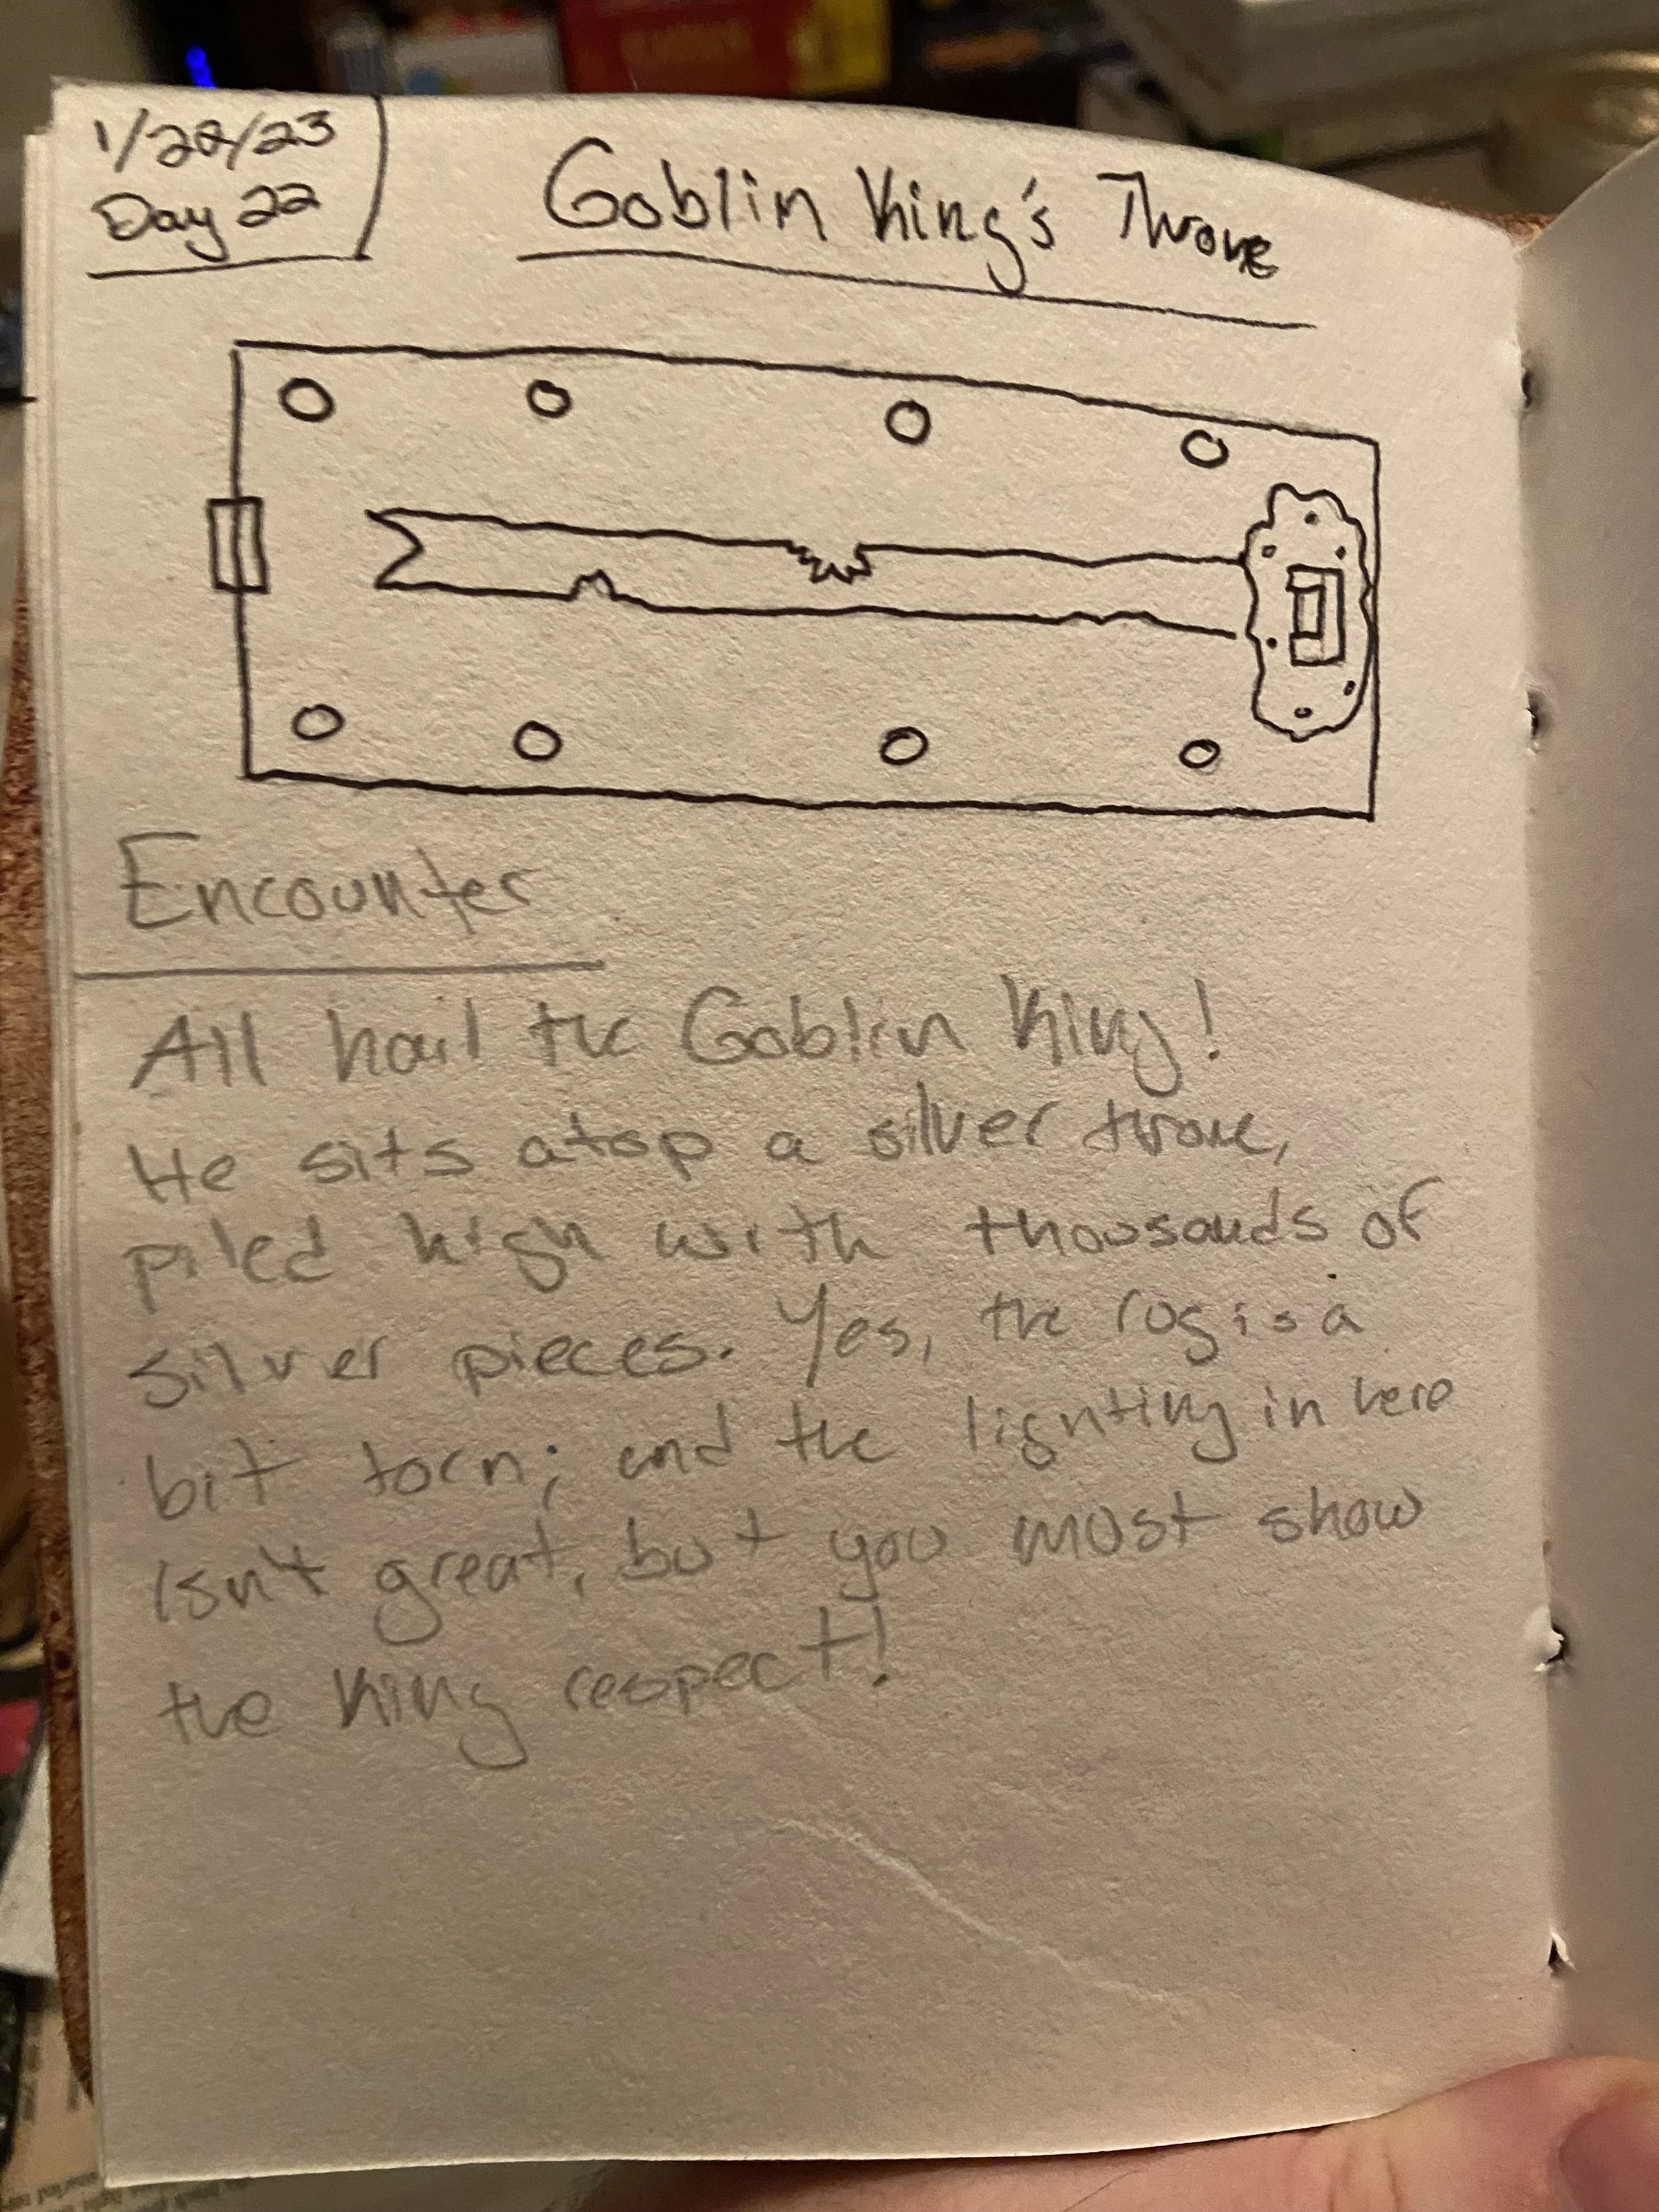 1/22/23
Day 22
Goblin King's Throne
Encounter
All hail the Goblin King!
He sits atop a silver throne,
piled high with thousands of
silver pieces. Yes, the rug is a
bit torn; and the lighting in here
isn't great, but you must show
the King respect!